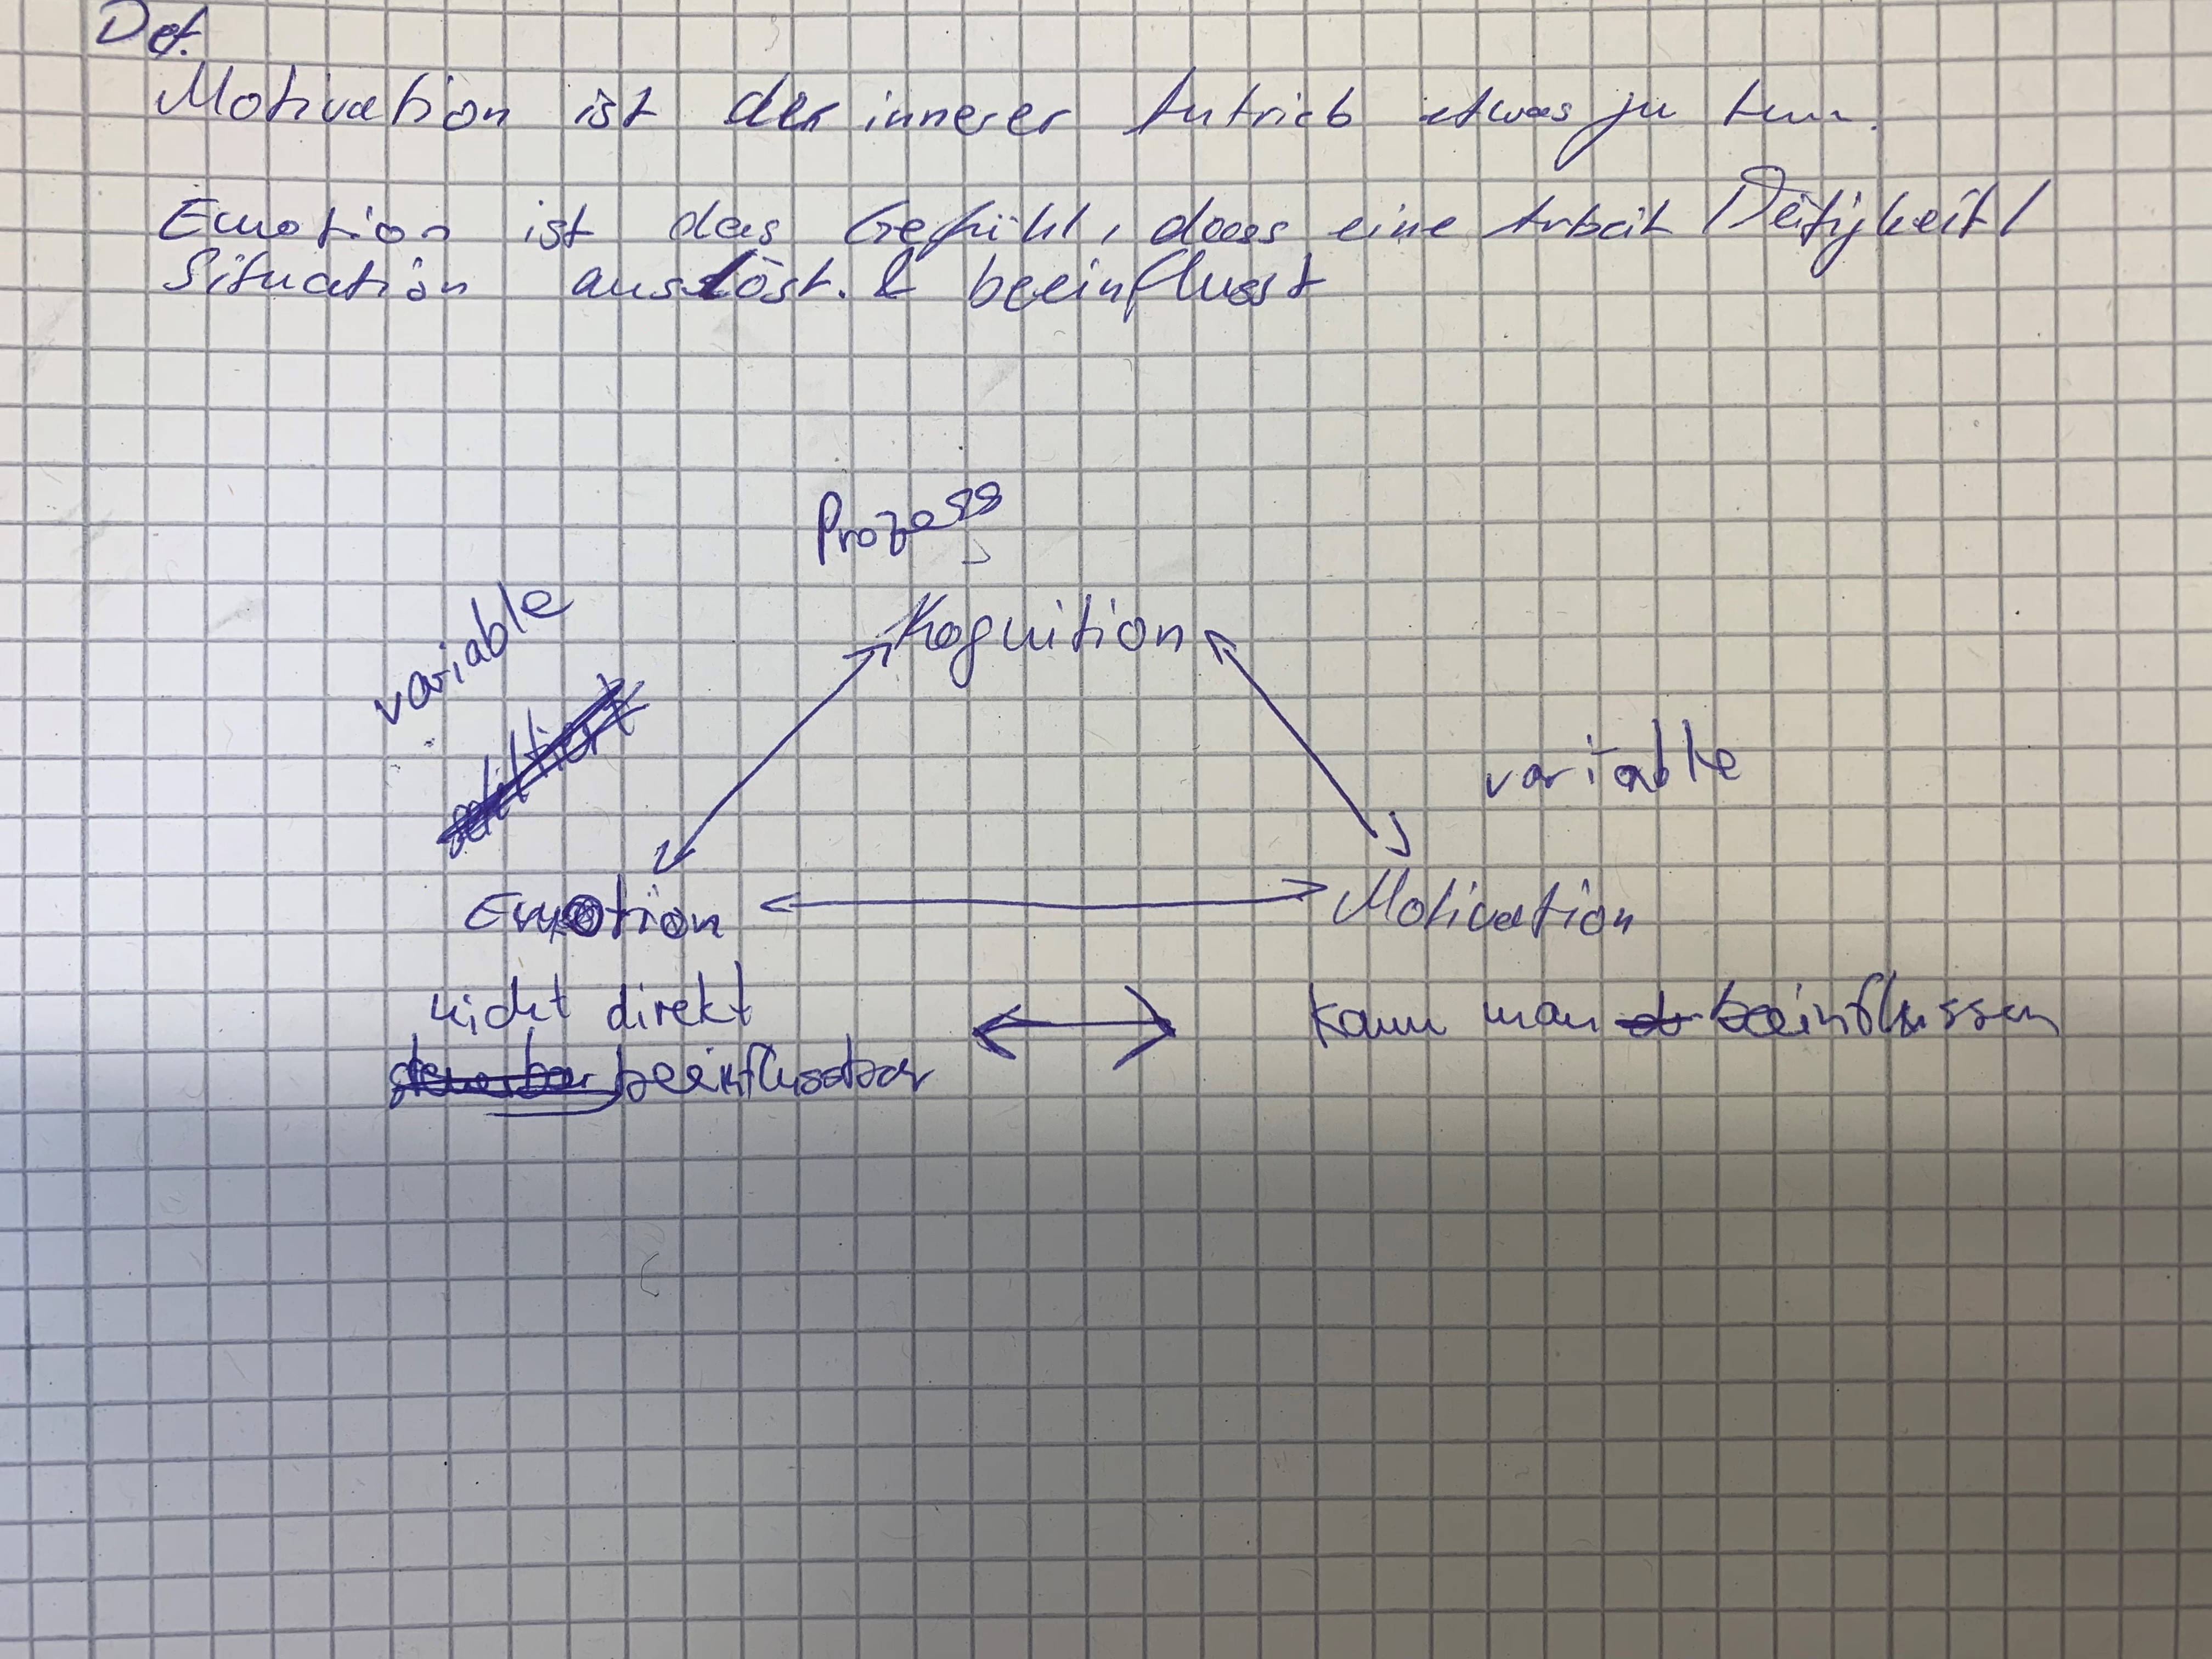 Def.
Motivation ist der innerer Antrieb etwas zu tun.
Emotion ist das Gefühl, dass eine Arbeit / Tätigkeit /
Situation auslöst. & beeinflusst
Prozess
variable
Kognition
variable
Emotion Motivation
nicht direkt
kann man beeinflussen
steuerbar beeinflussbar